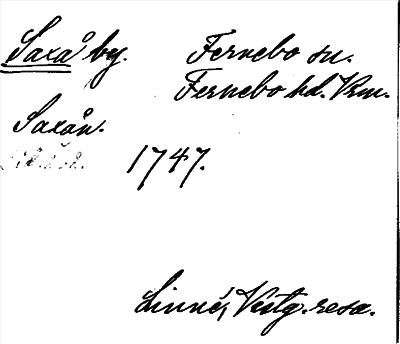 Saxå by. Fernebo sn.
Fernebo hd. Vrm.
Saxån.
1747.
Linné, Vestg. resa.